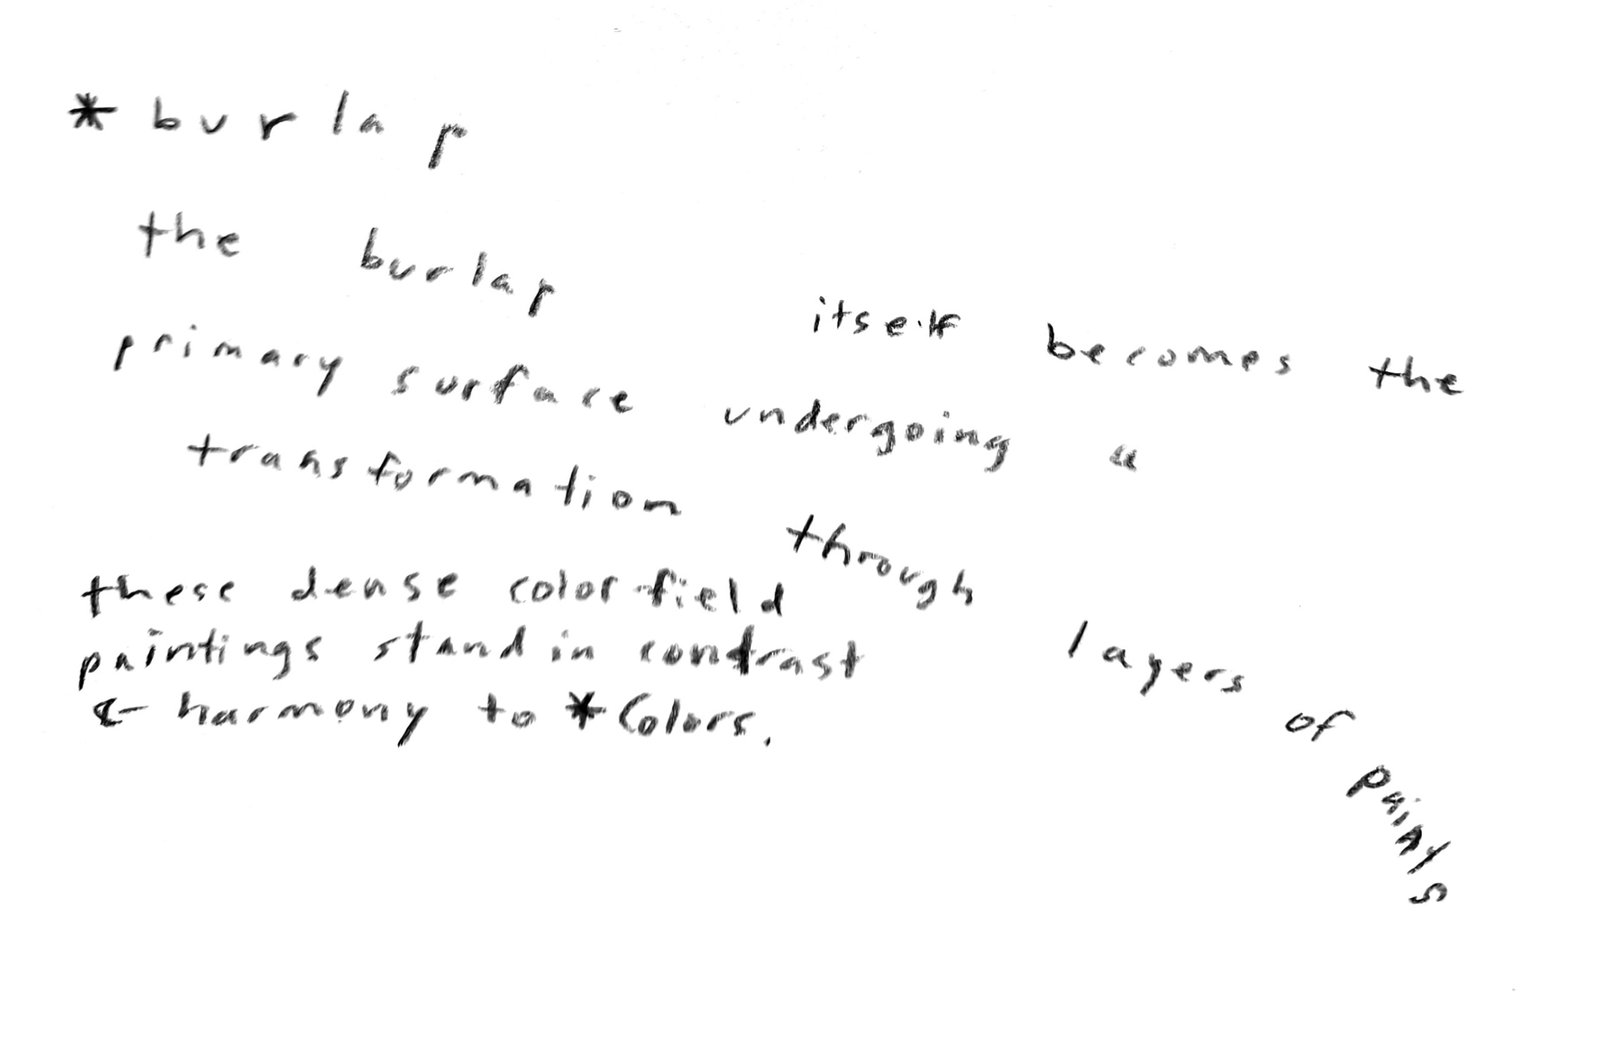 * burlap
the burlap itself becomes the
primary surface undergoing a
transformation through layers of paints
these dense color field
paintings stand in contrast
& harmony to * Colors.